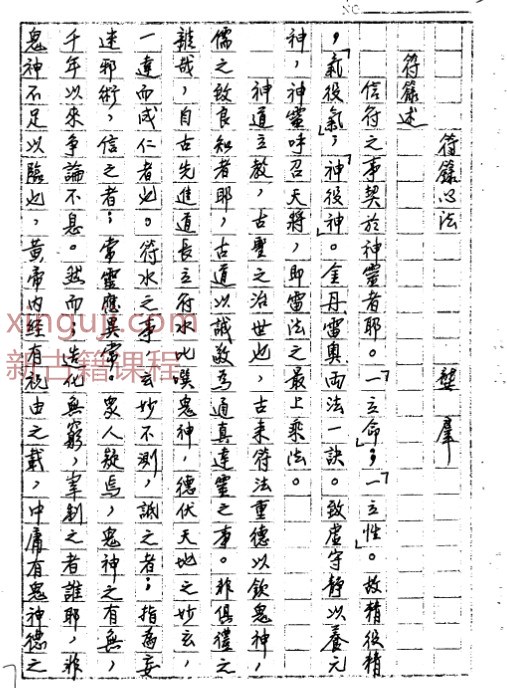 NO
符籙心法　　龔羣
符籙述
信符之事契於神靈者耶。「一立命」；「一立性」。故精役精
，「氣役氣」，「神役神」。金丹雷奧兩法一訣。致虛守靜以養元
神，神靈呼召天將，即雷法之最上乘法。
神道立教，古聖之治世也，古来符法重德以欽鬼神，
儒之致良知者耶，古道以誠敬為通真達靈之事。非俱禮之
雜哉，自古先進道長立符水叱噀鬼神，德伏天地之妙玄，
一達而成仁者也。符水之事，玄妙不測，詆之者；指為妄
迷邪術，信之者；常靈應異常。眾人疑焉，鬼神之有無，
千年以來爭論不息。然而；造化無窮，宰制之者誰耶，非
鬼神不足以臨也，黃帝内经有祝由之載，中庸有鬼神德之
xingujj.com
新古籍课程